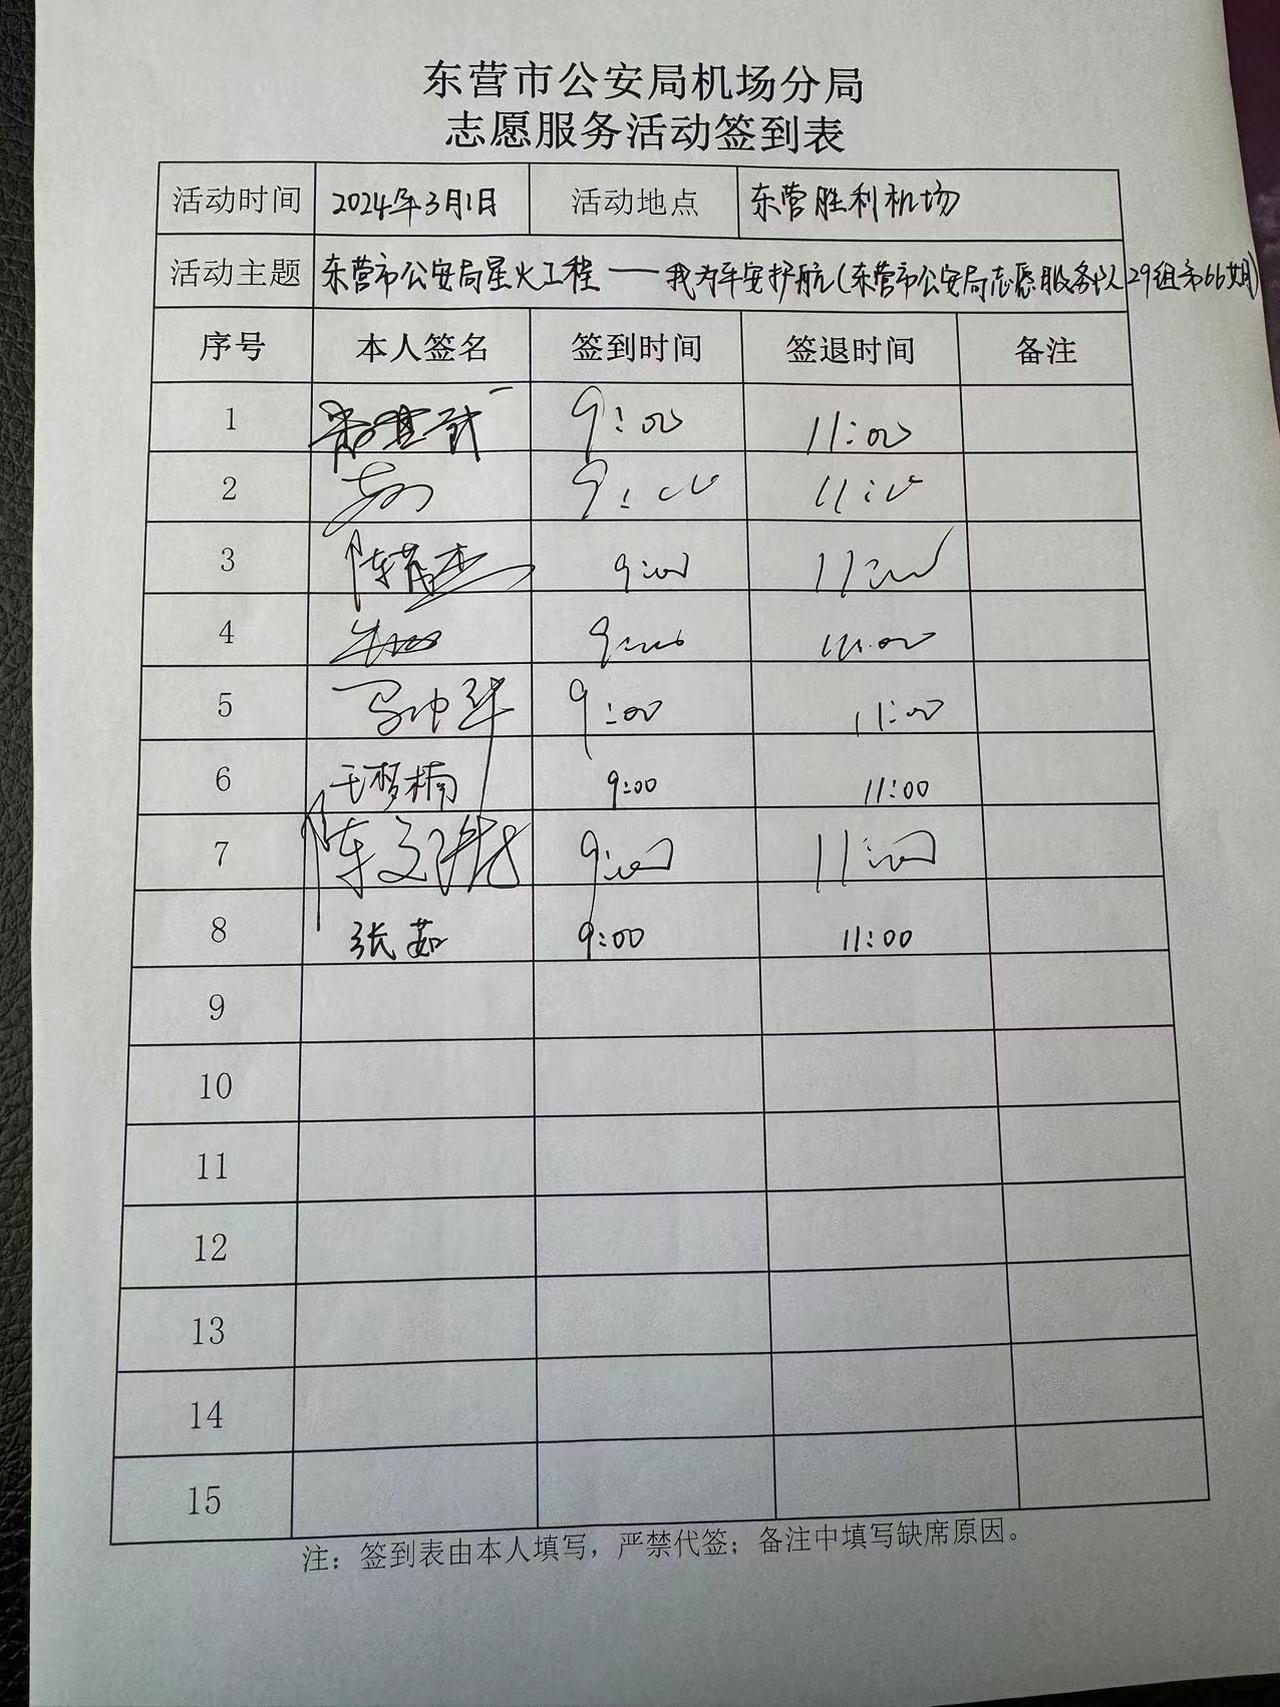 东营市公安局机场分局
志愿服务活动签到表
活动时间 2024年3月1日 活动地点 东营胜利机场
活动主题 东营市公安局星火工程——我为平安护航(东营市公安局志愿服务队29组第66期)
序号 本人签名 签到时间 签退时间 备注
1 9:00 11:00
2 9:00 11:00
3 陈 杰 9:00 11:00
4 9:00 11:00
5 9:00 11:00
6 王梦楠 9:00 11:00
7 陈文 9:00 11:00
8 张茹 9:00 11:00
9
10
11
12
13
14
15
注：签到表由本人填写，严禁代签；备注中填写缺席原因。